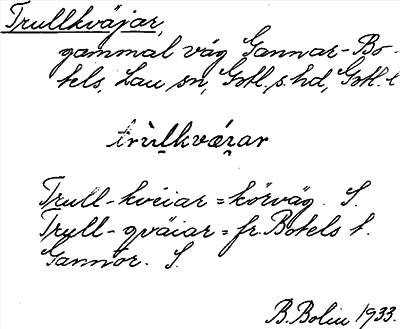 Trullkväjar,
gammal väg Gannar-Bo-
tels, Lau sn, Gotl. s. hd, Gotl. l
trùḷkvæ̣rar
Trull-kvéiar = körväg. S.
Trull-qväiar = fr. Botels t.
Gannor. S.
B. Bolin 1933.